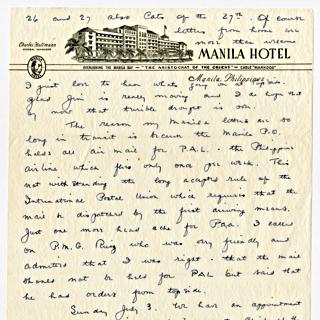 26 and 27 also Cats of the 27th. Of course
letters from home are
more than welcome
Charles Hallmann
GENERAL MANAGER
MANILA HOTEL
OVERLOOKING THE MANILA BAY — "THE ARISTOCRAT OF THE ORIENT" — CABLE "MANHOCO"
Manila, Philippines
I just love to hear whats going on at
glad Jim is really moving and I do hope that
by now that terrible drought is over.
The reason my Manila letters are so
long in transit is because the Manila P.O.
holds all air mail for P.A.L. - the Philippine
airline which flies only once per week. This
not withstanding the long accepted rule of the
International Postal Union which requires that the
mail be dispatched by the first arriving means.
Just one more head ache for Paa. I called
on P.M.G. Ruiz who was very friendly and
admitted that I was right - that the mail
should not be held for PAL but said that
he has orders from top side.
Sunday July 3. We have an appointment